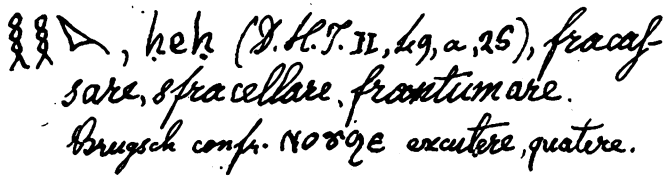 𓎛𓎛, ḥeḥ (D.H.T. II, 49, a, 25), fracas-
sare, sfracellare, frantumare.
Brugsch confr. ⲛⲟⲩϩⲉ excutere, quatere.